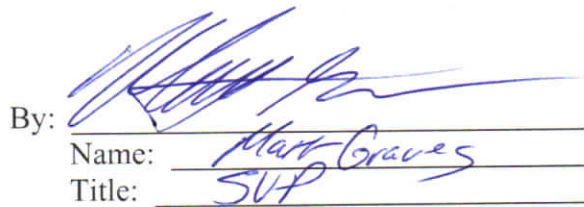 By:
Name: Matt Graves
Title: SVP